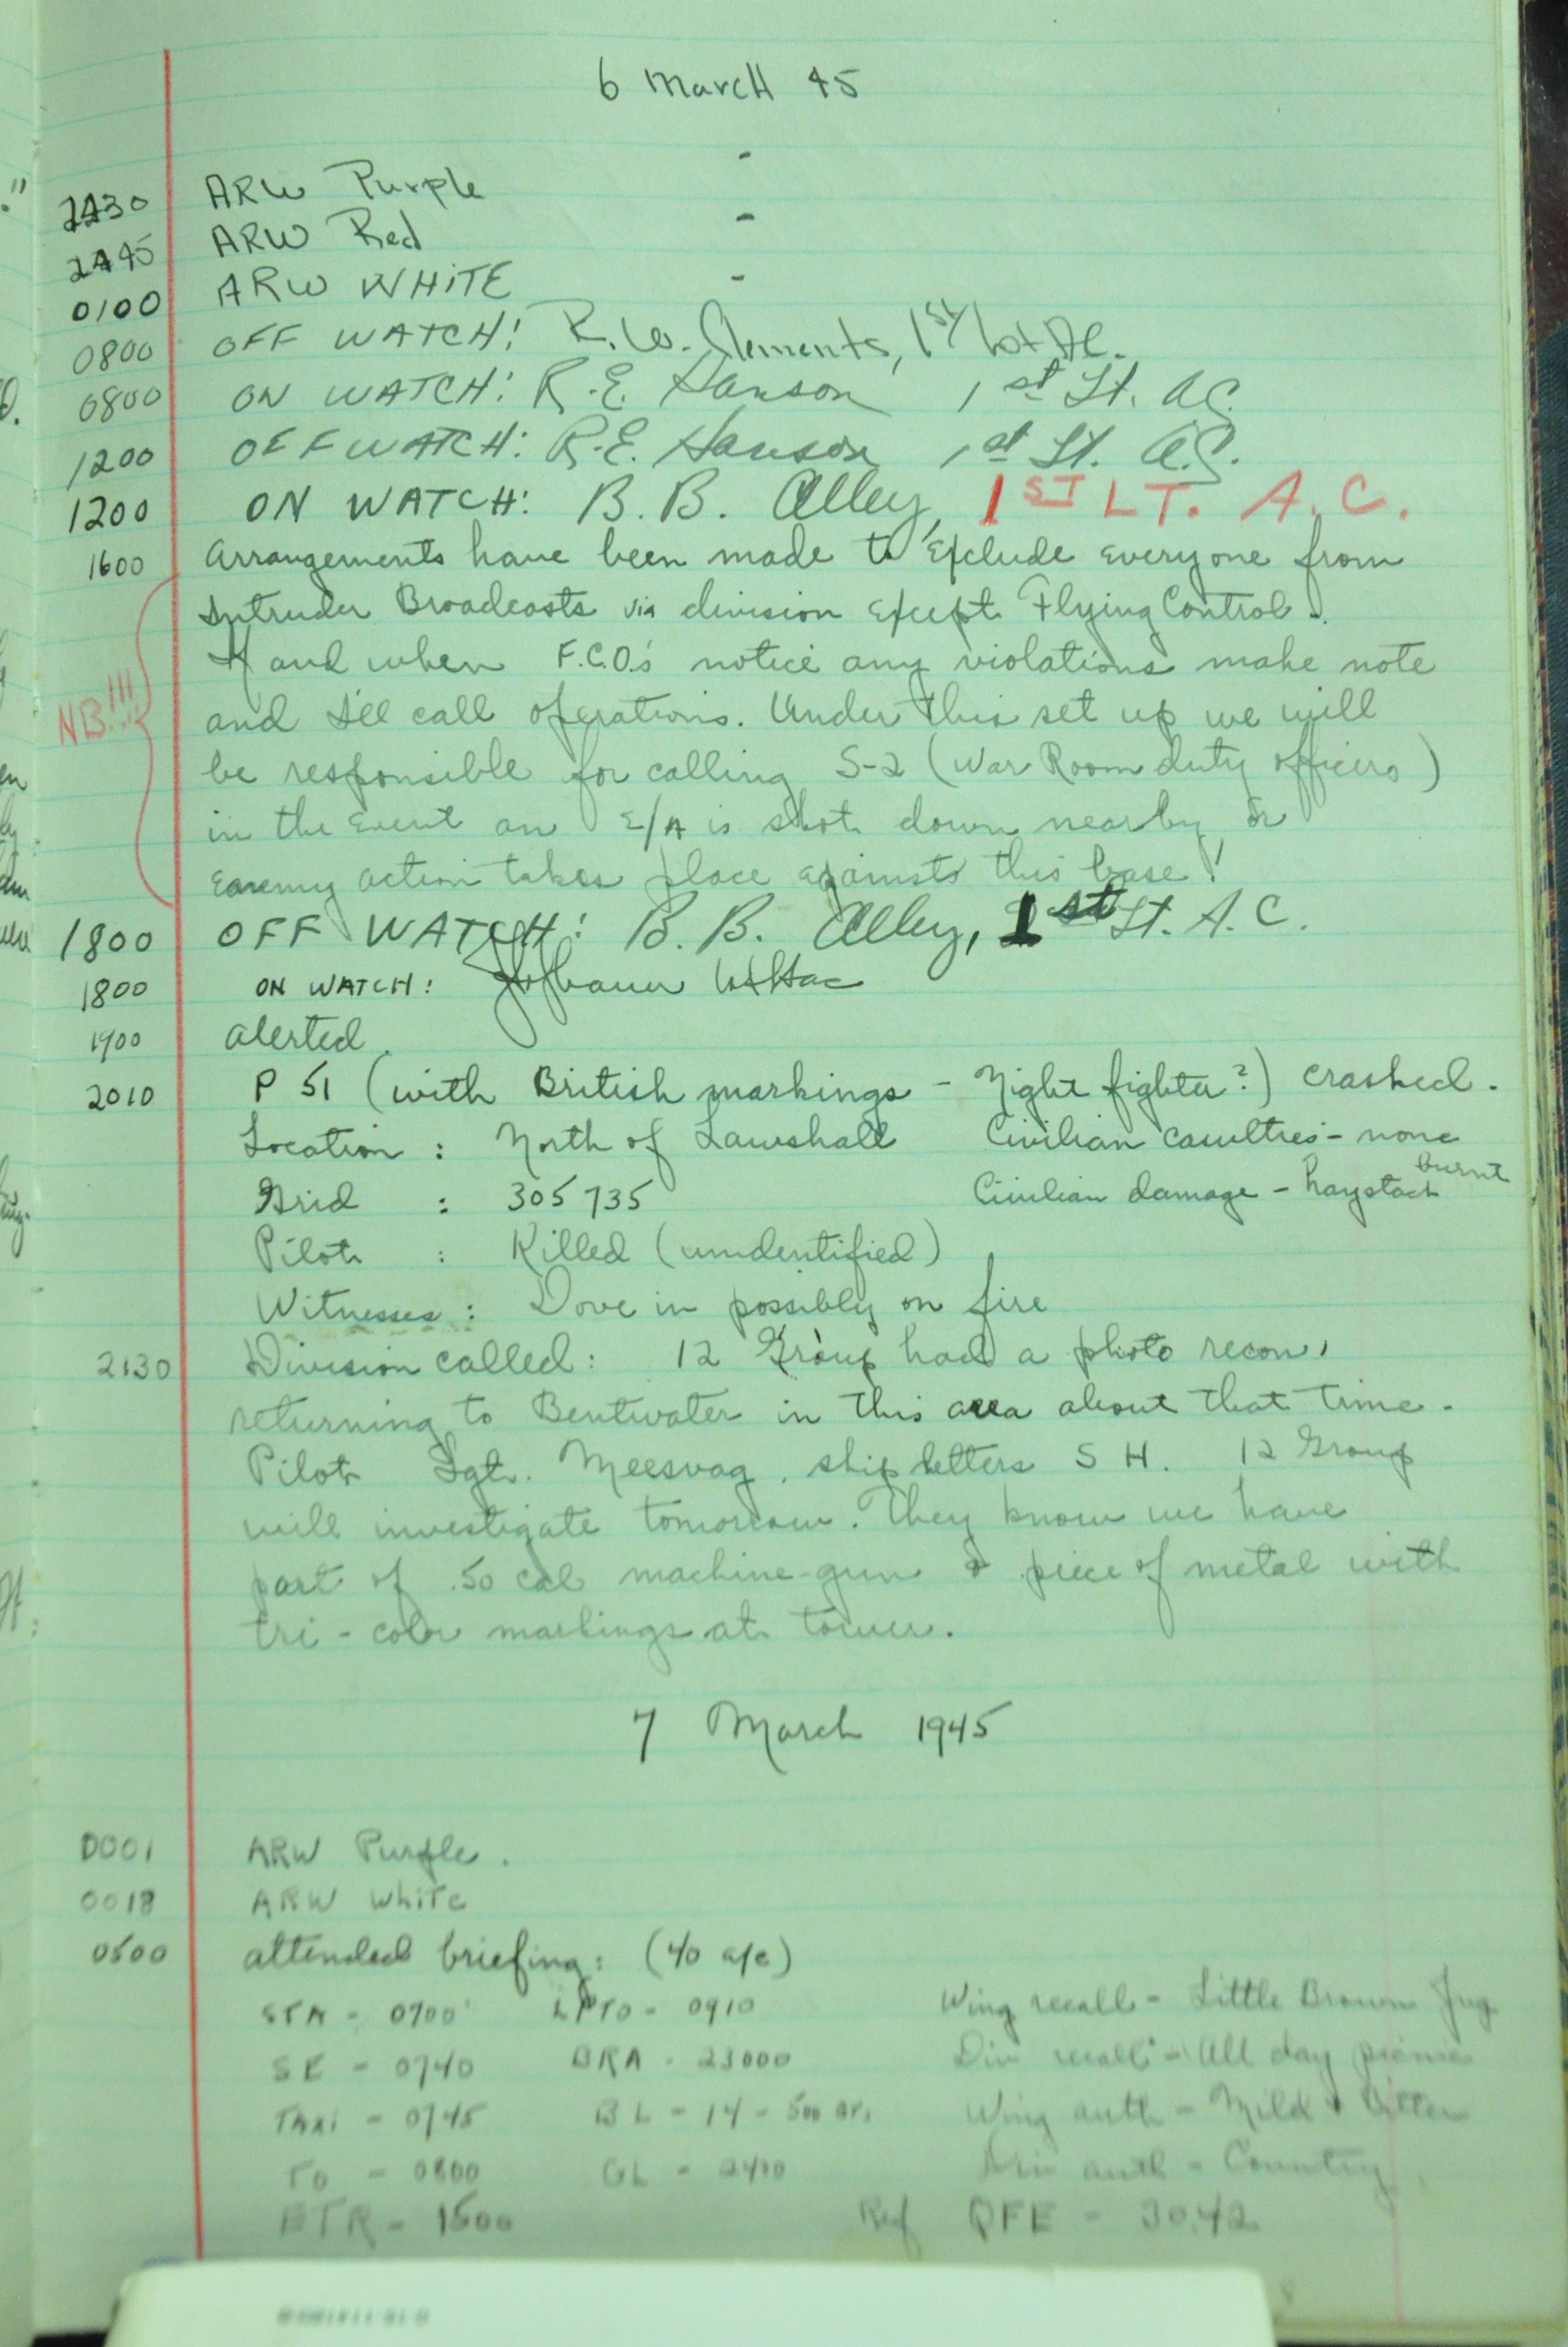 6 March 45
2430 ARW Purple -
2445 ARW Red -
0100 ARW WHITE -
0800 OFF WATCH: R.W. Clements, 1st Lt AC.
0800 ON WATCH: R.E. Hanson 1st Lt. AC.
1200 OFF WATCH: R.E. Hanson 1st Lt. A.C.
1200 ON WATCH: B. B. Alley, 1ST LT. A.C.
1600 Arrangements have been made to exclude everyone from
Intruder Broadcasts via division except Flying Control.
If and when F.C.O's notice any violations make note
NB!!! and I'll call operations. Under this set up we will
be responsible for calling S-2 (War Room duty officers)
in the event an E/A is shot down nearby or
enemy action takes place againsts this base!
1800 OFF WATCH: B. B. Alley, 1st Lt. A.C.
1800 ON WATCH:
1900 alerted
2010 P 51 (with British markings - Night fighter?) crashed.
Location : North of Lawshall Civilian casulties - none
Grid : 305735 Civilian damage - haystack burnt
Pilot : Killed (unidentified)
Witnesses : Dove in possibly on fire
2130 Division called: 12 Group had a photo recon,
returning to Bentwater in this area about that time.
Pilot Sgt. Meesvag, ship letters S H. 12 Group
will investigate tomorrow. They know we have
part of .50 cal machine-gun & piece of metal with
tri-color markings at tower.
7 March 1945
0001 ARW Purple.
0018 ARW White
0500 attended briefing: (40 a/c)
STA - 0700 LPTO - 0910 Wing recall - Little Brown Jug
SE - 0740 BRA - 23000 Div recall - All day picnic
TAXI - 0745 BL - 14 - 500 GP. Wing auth - Mild & Bitter
TO - 0800 GL - 2400 Div auth - Country
ETR - 1500 Ref QFE - 30.42